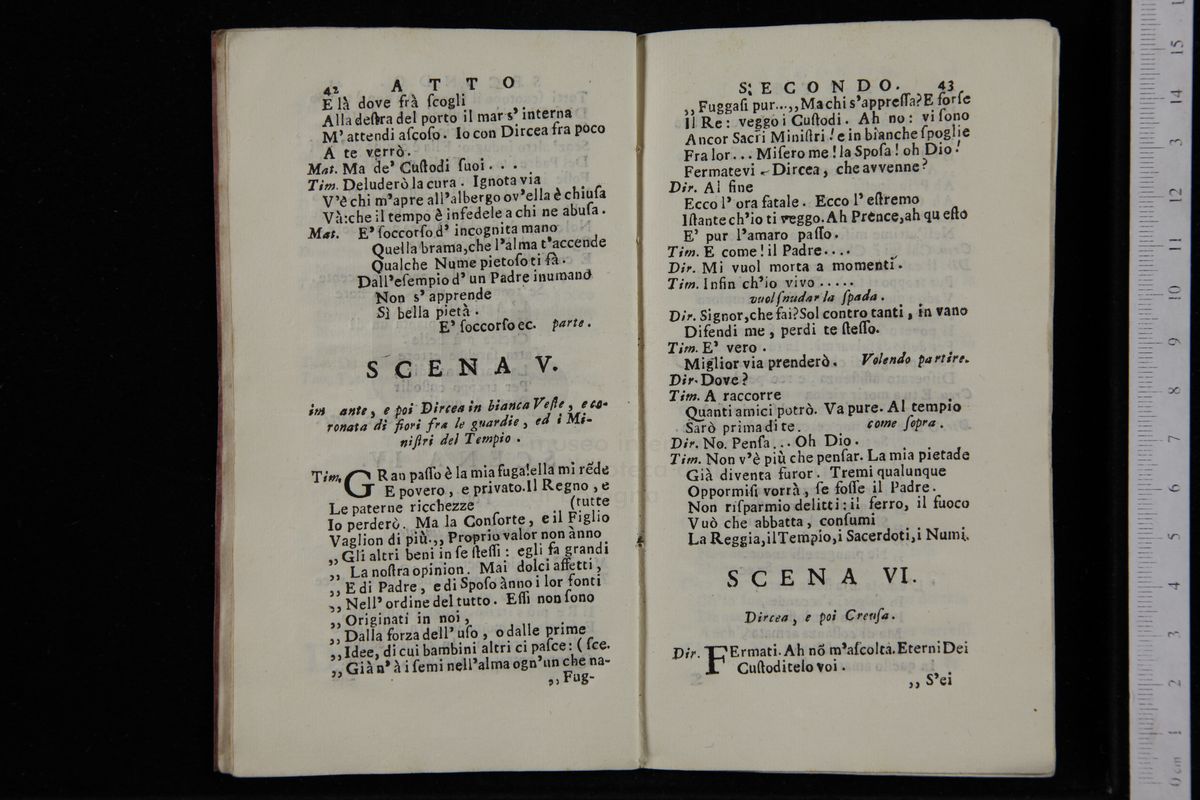 42 A T T O
E là dove frà ſcogli
Alla deſtra del porto il mar s' interna
M' attendi aſcoſo. Io con Dircea fra poco
A te verrò.
Mat. Ma de' Cuſtodi ſuoi. . .
Tim. Deluderò la cura. Ignota via
V'è chi m'apre all'albergo ov'ella è chiuſa
Và: che il tempo è infedele a chi ne abuſa.
Mat. E' ſoccorſo d' incognita mano
Quella brama, che l'alma t'accende
Qualche Nume pietoſo ti fà.
Dall'eſempio d' un Padre inumano
Non s' apprende
Sì bella pietà.
E' ſoccorſo ec. parte.
SCENA V.
ante, e poi Dircea in bianca Veſte, e co-
ronata di fiori fra le guardie, ed i Mi-
niſtri del Tempio.
Tim. GRan paſſo è la mia fuga! ella mi rẽde
E povero, e privato. Il Regno, e
Le paterne ricchezze (tutte
Io perderò. Ma la Conſorte, e il Figlio
Vaglion di più. ,, Proprio valor non ànno
,, Gli altri beni in ſe ſteſſi: egli fa grandi
,, La noſtra opinion. Mai dolci affetti,
,, E di Padre, e di Spoſo ànno i lor fonti
,, Nell' ordine del tutto. Eſſi non ſono
,, Originati in noi,
,, Dalla forza dell' uſo, o dalle prime
,, Idee, di cui bambini altri ci paſce: (ſce.
,, Già n' à i ſemi nell'alma ogn'un che na-
,, Fug-
SECONDO. 43
,, Fuggaſi pur...,, Ma chi s'appreſſa? E forſe
Il Re: veggo i Cuſtodi. Ah no: vi ſono
Ancor Sacri Miniſtri! e in bianche ſpoglie
Fra lor... Miſero me! la Spoſa! oh Dio!
Fermatevi - Dircea, che avvenne?
Dir. Al fine
Ecco l' ora fatale. Ecco l' eſtremo
Iſtante ch'io ti veggo. Ah Prence, ah queſto
E' pur l'amaro paſſo.
Tim. E come! il Padre....
Dir. Mi vuol morta a momenti.
Tim. Infin ch'io vivo .....
vuol ſnudar la ſpada.
Dir. Signor, che fai? Sol contro tanti, in vano
Difendi me, perdi te ſteſſo.
Tim. E' vero.
Miglior via prenderò. Volendo partire.
Dir. Dove?
Tim. A raccorre
Quanti amici potrò. Va pure. Al tempio
Sarò prima di te. come ſopra.
Dir. No. Penſa... Oh Dio.
Tim. Non v'è più che penſar. La mia pietade
Già diventa furor. Tremi qualunque
Oppormiſi vorrà, ſe foſſe il Padre.
Non riſparmio delitti: il ferro, il fuoco
Vuò che abbatta, conſumi
La Reggia, il Tempio, i Sacerdoti, i Numi.
SCENA VI.
Dircea, e poi Creuſa.
Dir. FErmati. Ah nõ m'aſcolta. Eterni Dei
Cuſtoditelo voi.
,, S'ei